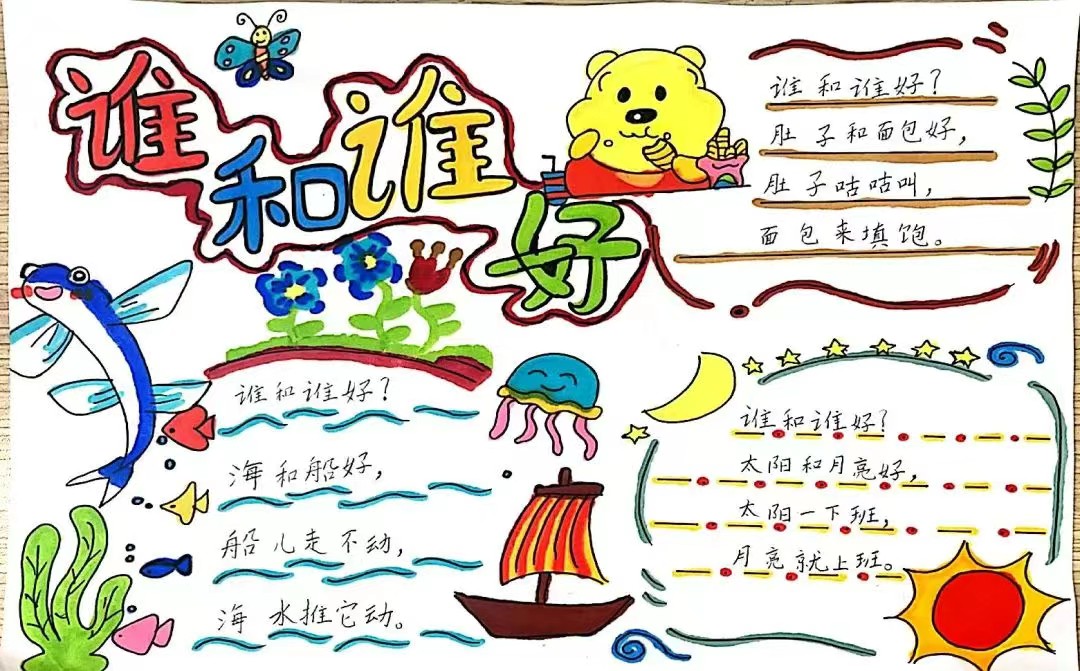 谁和谁好
谁和谁好？
肚子和面包好，
肚子咕咕叫，
面包来填饱。
谁和谁好？
海和船好，
船儿走不动，
海水推它动。
谁和谁好？
太阳和月亮好，
太阳一下班，
月亮就上班。